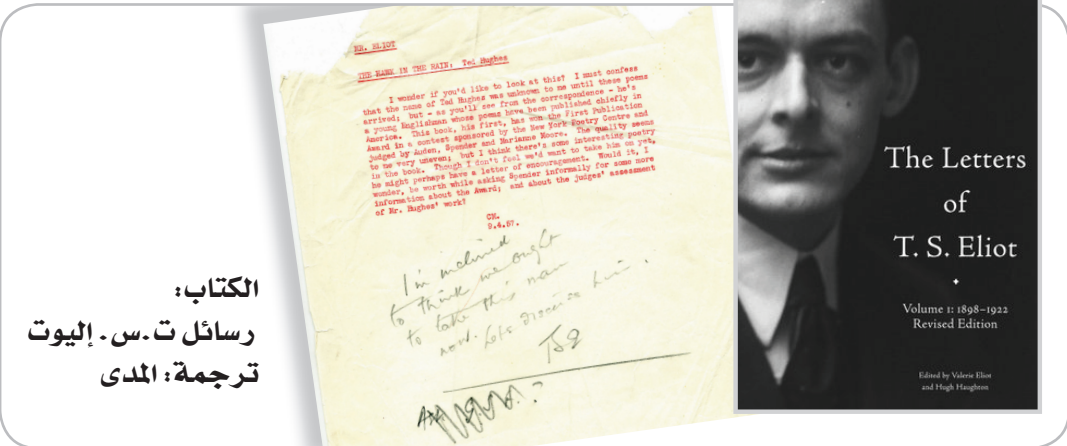 MR. ELIOT
THE HAWK IN THE RAIN: Ted Hughes
I wonder if you'd like to look at this? I must confess
that the name of Ted Hughes was unknown to me until these poems
arrived; but - as you'll see from the correspondence - he's
a young Englishman whose poems have been published chiefly in
America. This book, his first, has won the First Publication
Award in a contest sponsored by the New York Poetry Centre and
judged by Auden, Spender and Marianne Moore. The quality seems
to me very uneven; but I think there's some interesting poetry
in the book. Though I don't feel we'd want to take him on yet,
he might perhaps have a letter of encouragement. Would it, I
wonder, be worth while asking Spender informally for some more
information about the Award; and about the judges' assessment
of Mr. Hughes' work?
CM.
9.4.57.
I'm inclined
to think we ought
to take this man
now. Let's discuss him.
TSE
The Letters
of
T. S. Eliot
Volume 1: 1898–1922
Revised Edition
Edited by Valerie Eliot
and Hugh Haughton
الكتاب:
رسائل ت.س. إليوت
ترجمة: المدى